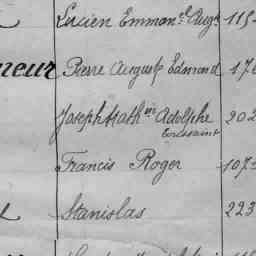 Lucien Emman.el Aug.te 115
neur Pierre Auguste Edmond 176
Joseph Math.in Adolphe 202
Toussaint
Francis Roger 107
Stanislas 223